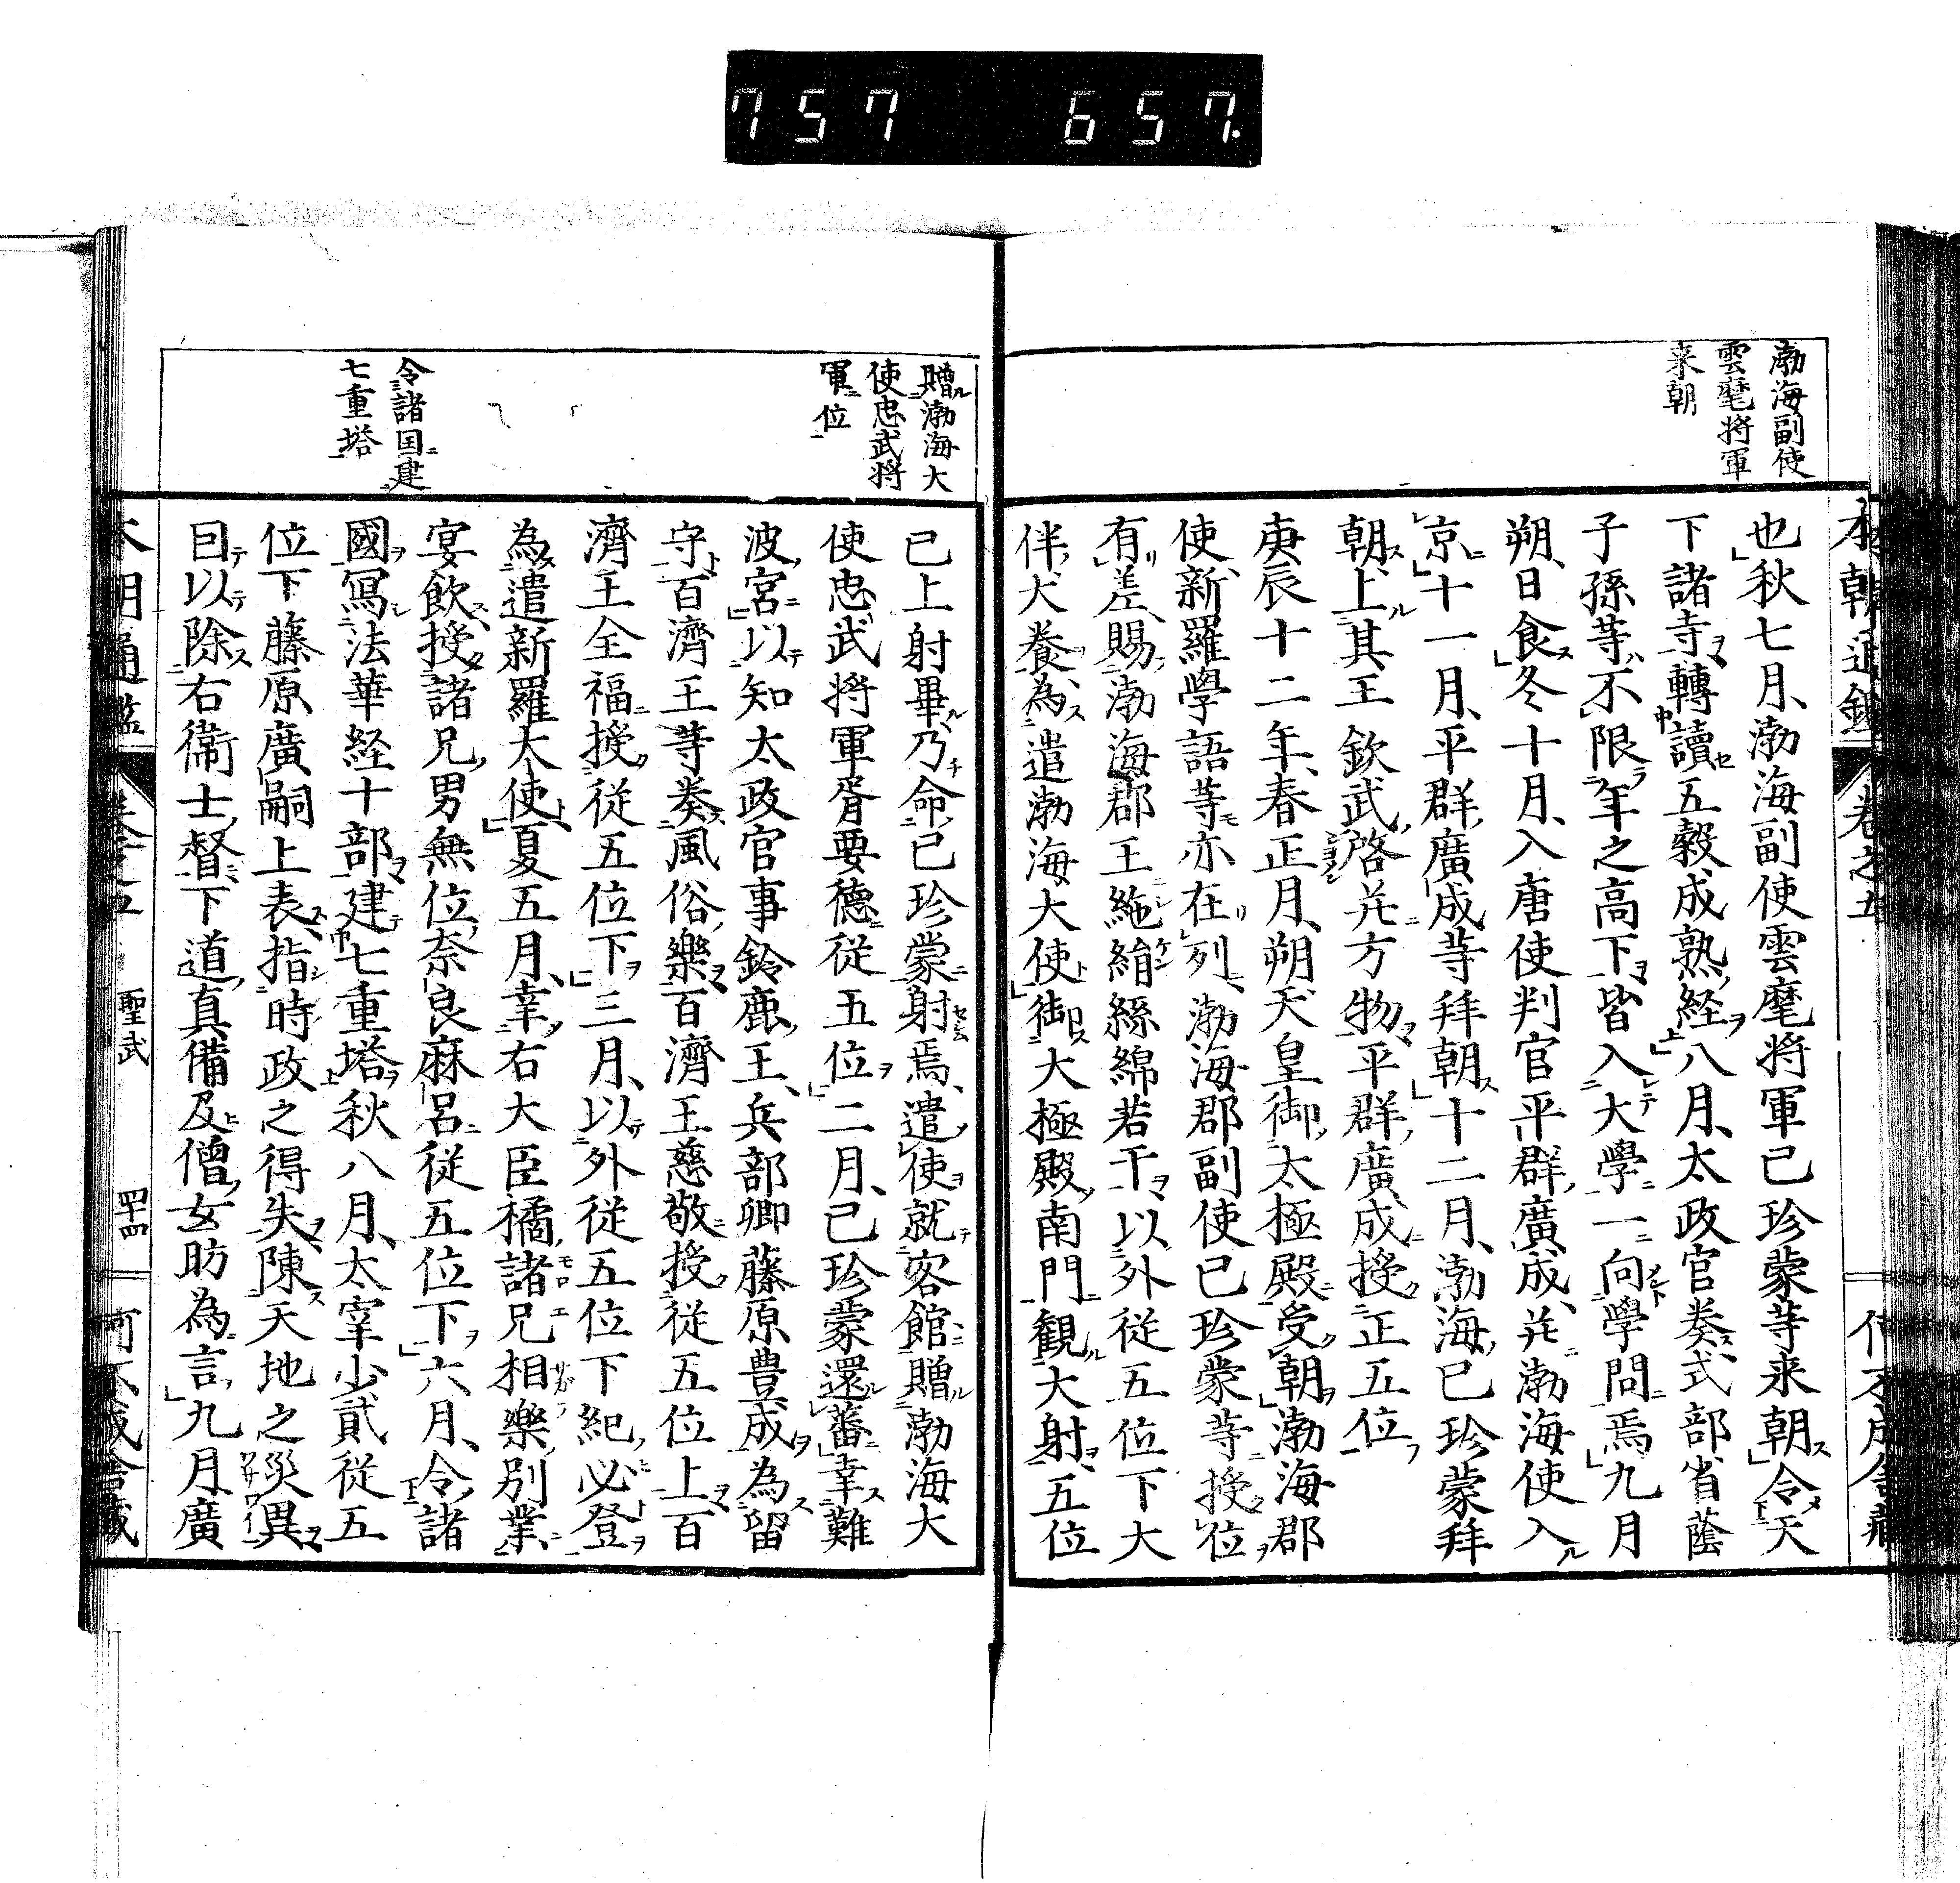 757 657.
渤海副使
雲麾將軍
来朝
也秋七月、渤海副使雲麾将軍己珍蒙等来朝令天
下諸寺轉讀五穀成熟経八月、太政官奏式部省蔭
子孫等不限年之高下皆入大學一向學問焉九月
朔、日食冬十月、入唐使判官平群廣成、并渤海使入
京十一月、平群廣成等拜朝十二月、渤海已珍蒙拜
朝、上其王欽武啓并方物平群廣成授正五位
庚辰十二年、春正月、朔天皇御太極殿受朝渤海郡
使、新羅學語等亦在列、渤海郡副使已珍蒙等授位
有差賜渤海郡王絁絹絲綿若干以外従五位下大
伴犬養、為遣渤海大使御大極殿南門観大射、五位
贈渤海大
使忠武将
軍位
令諸国建
七重塔
己上射畢乃命己珍蒙射焉、遣使就客館、贈渤海大
使忠武将軍胥要德従五位二月、己珍蒙還蕃幸難
波宮以知太政官事鈴鹿王、兵部卿藤原豊成為留
守百濟王等奏風俗樂百濟王慈敬授従五位上百
濟王全福授従五位下三月、以外従五位下紀必登
為遣新羅大使夏五月、幸右大臣橘諸兄相樂別業、
宴飲授諸兄男無位奈良麻呂従五位下六月、令諸
國寫法華経十部建七重塔秋八月、太宰少貳従五
位下藤原廣嗣上表指時政之得失陳天地之災異
曰以除右衛士督下道真備及僧玄昉為言九月廣
本朝通鑑 巻之五 聖武 四十四